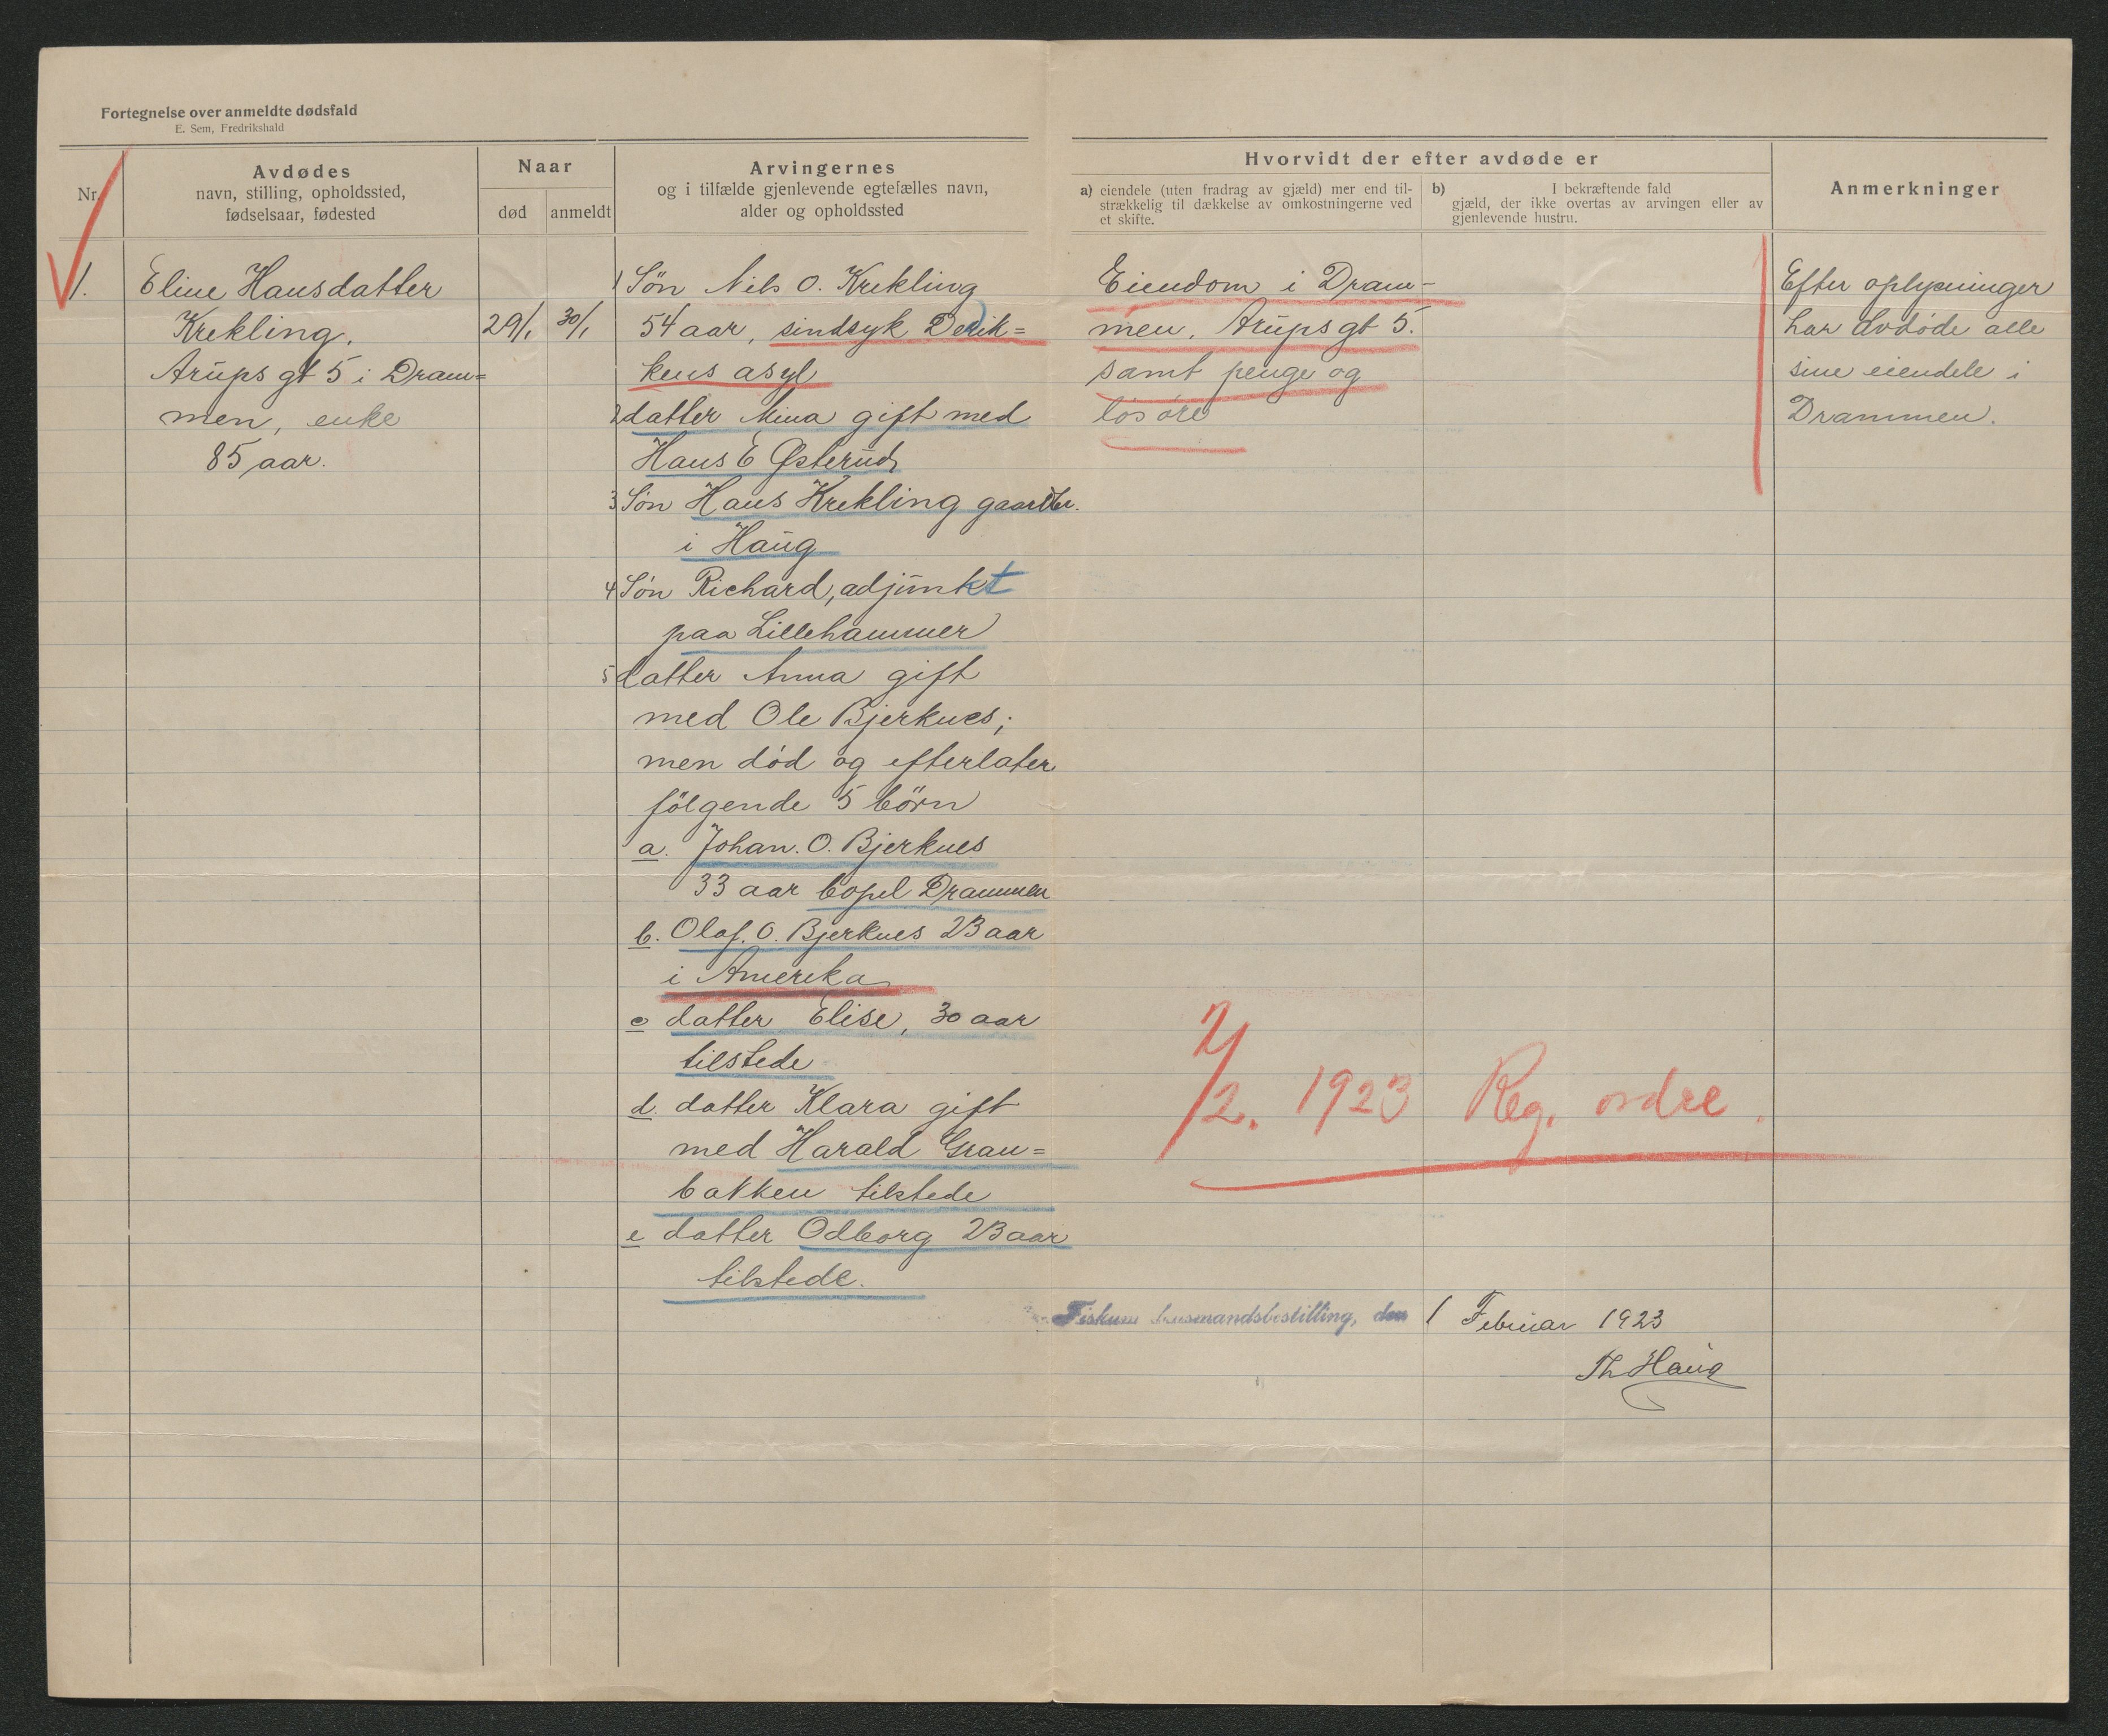 Fortegnelse over anmeldte dødsfald
E. Sem, Fredrikshald
Nr.
Avdødes
navn, stilling, opholdssted,
fødselsaar, fødested
Naar
død
anmeldt
Arvingernes
og i tilfælde gjenlevende egtefælles navn,
alder og opholdssted
Hvorvidt der efter avdøde er
a) eiendele (uten fradrag av gjæld) mer end til-
strækkelig til dækkelse av omkostningerne ved
et skifte.
b) I bekræftende fald
gjæld, der ikke overtas av arvingen eller av
gjenlevende hustru.
Anmerkninger
1.
Eline Hansdatter
Krekling,
Arups gt 5 i Dram=
men, enke
85 aar.
29/1
30/1
1 Søn Nils O. Krekling
54 aar, sindsyk Derik=
kens asyl
2 datter Mina gift med
Hans E Østerud
3 Søn Hans Krekling gaardbr.
i Haug
4 Søn Richard, adjunkt
paa Lillehammer
5 datter Anna gift
med Ole Bjerknes;
men død og efterlater
følgende 5 børn
a. Johan. O. Bjerknes
33 aar bopel Drammen
b. Olaf. O. Bjerknes 23 aar
i Amerika
c datter Elise, 30 aar
tilstede
d. datter Klara gift
med Harald Gran=
bakken tilstede
e datter Odborg 23 aar
tilstede.
Eiendom i Dram-
men, Arups gt 5.
samt penge og
løsøre
Efter oplysninger
har Avdøde alle
sine eiendele i
Drammen.
2/2. 1923 Reg. ordre.
Fiskum lensmandsbestilling, den 1 Februar 1923
Th Haug